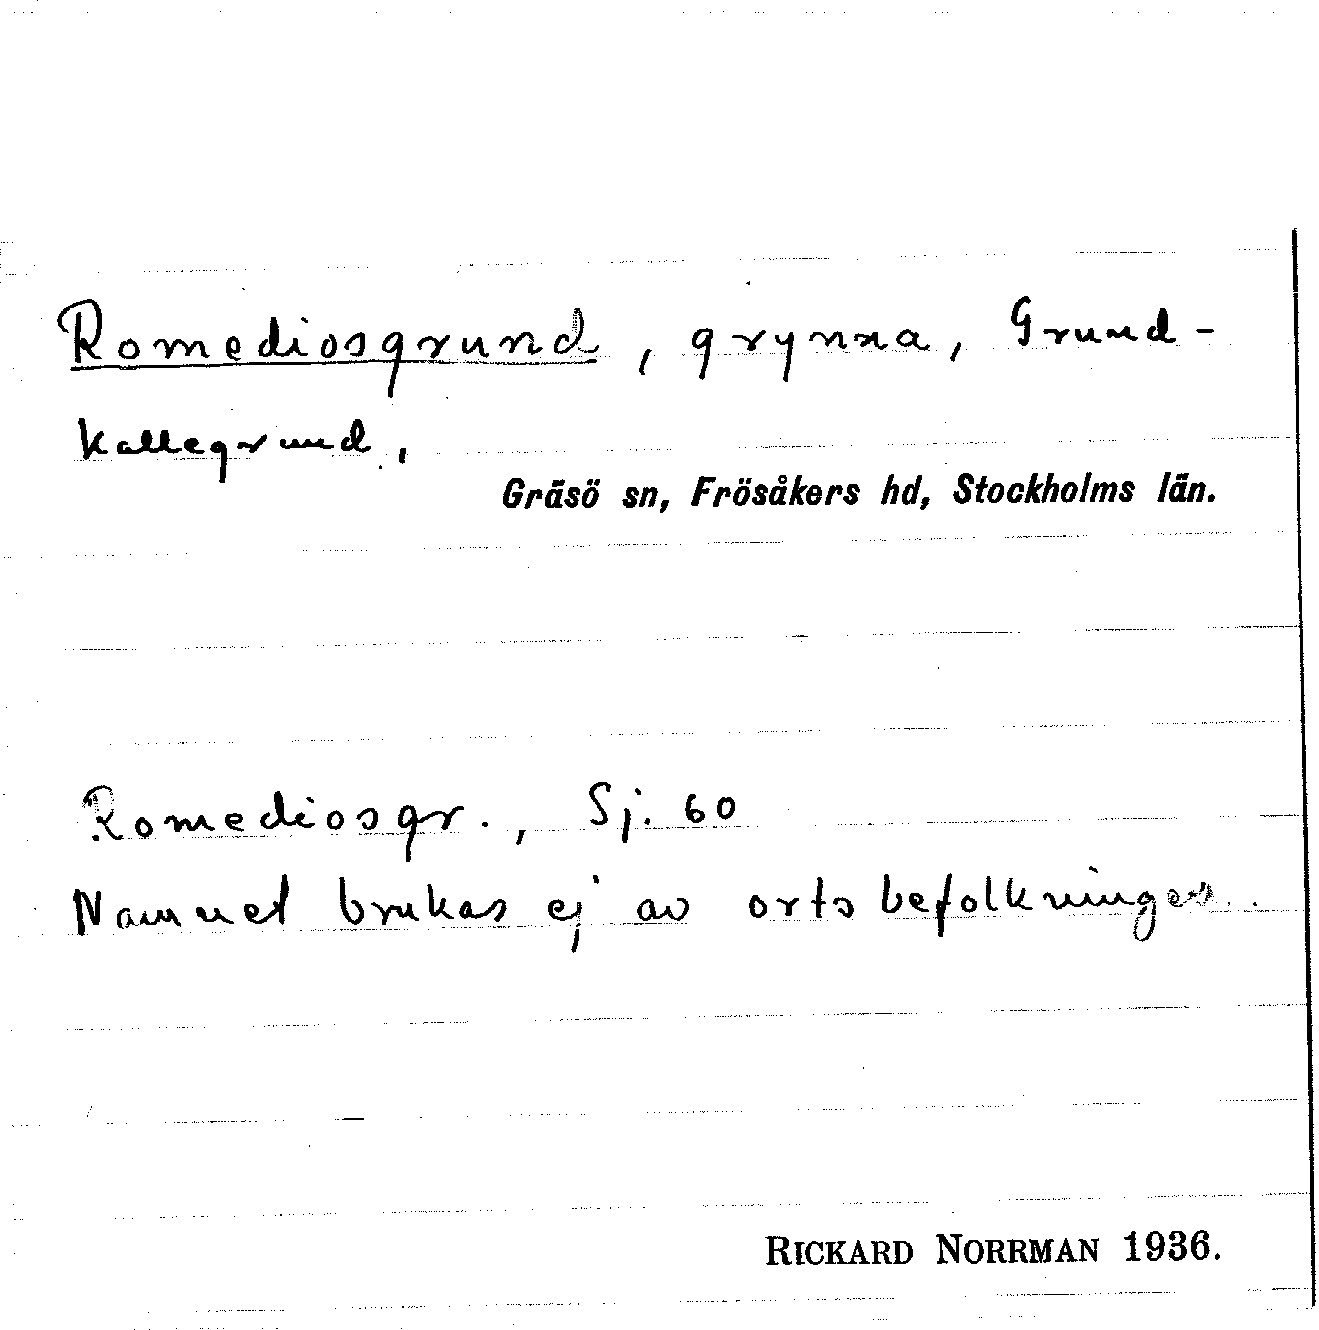 Romediosgrund, grynna, Grund-
kallegrund,
Gräsö sn, Frösåkers hd, Stockholms län.
Romediosgr., Sj. 60
Namnet brukas ej av ortsbefolkningen.
RICKARD NORRMAN 1936.